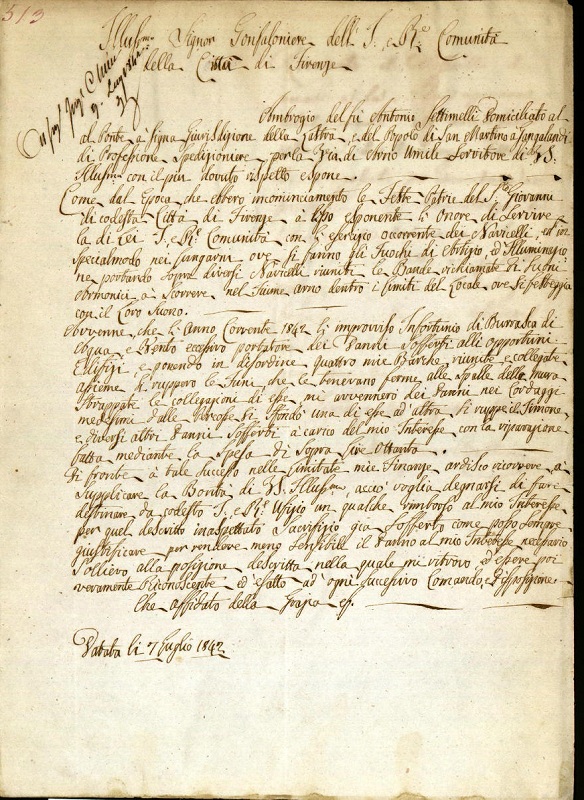 513
Illus.mo Signor Gonfaloniere dell' I. e R.e Comunità
della Città di Firenze
Ambrogio del fù Antonio Settimelli Domiciliato al
al Ponte à Signa Giurisdizione della Lastra, e del Popolo di San Martino à Gangalandi
di Professione Spedizioniere, per la Via di Arno Umile Servitore di VS.
Illus.ma con il più dovuto rispetto espone.
Come dal Epoca che ebbero incominciamento le Feste Patrie del S.to Giovanni
di codesta Città di Firenze à esso esponente l' Onore di Servire
la di Lei I. e R.e Comunità con l' esercizio occorrente dei Navicelli, ed in
Specialmodo nei Lungarni ove si fanno gli Fuochi di Artifizio, ed Illuminazio=
ne portando sopra diversi Navicelli riuniti le Bande richiamate di Suoni
Armonici à Scorrere nel Fiume Arno dentro i limiti del Locale ove si festeggia
con il Loro Suono.
Avvenne, che l' Anno Corrente 1842 l' improvviso Infortunio di Burrasca di
Acqua, e Vento eccessivo portatore dei Danni Sofferti alli opportuni
Edifizi, e ponendo in disordine quattro mie Barche, riunite, e collegate
assieme si ruppero le Funi, che le tenevano ferme alle Spalle delle mura
Strappate le collegazioni di esse mi avvennero dei danni nei Cordaggi
medesimi dalle Percosse si sfondò una di esse ad altra si ruppe il Timone,
e diversi altri Danni Sofferti à carico del mio Interesse, con la riparazione
fatta mediante la Spesa di Sopra Lire Ottanta.
Di fronte à tale Successo nelle limitate mie Finanze, ardisco ricorrere, à
Supplicare la Bontà di VS. Illus.ma acciò voglia degnarsi di fare
destinare da codesto I. e R.e Ufizio un qualche rimborso al mio Interesse
per quel descritto inaspettato Sacrifizio già Sofferto come posso Sempre
giustificare per rendere meno Sensibile il Danno al mio Interesse necessario
Sollievo alla posizione descritta nella quale mi ritrovo, ed essere poi
veramente Riconoscente ed esatto ad ogni Successivo Comando, e Disposizione
Che affidato della Grazia
li 7 Luglio 1842